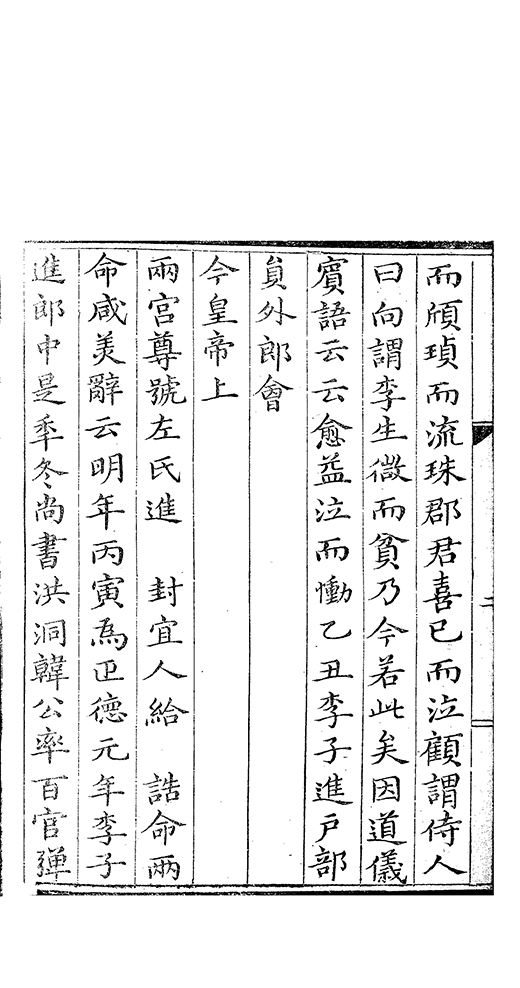 而頎瑱而流珠郡君喜已而泣顧謂侍人
曰向謂李生微而貧乃今若此矣因道儀
賓語云云愈益泣而慟乙丑李子進戶部
貟外郎會
今皇帝上
兩宮尊號左氏進　封宜人給　誥命兩
命咸美辭云明年丙寅爲正德元年李子
進郎中是秊冬尚書洪洞韓公率百官彈
二